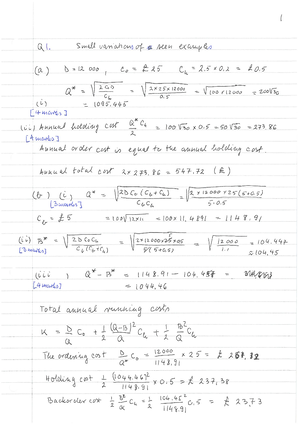 1
Q1. Small variations of a seen examples
(a) D = 12 000, C₀ = £ 25 Cₕ = 2.5 × 0.2 = £ 0.5
Q* = √(2C₀D / Cₕ) = √(2×25×12000 / 0.5) = √(100×12000) = 200√30
(i) = 1095.445
[4 marks]
(ii) Annual holding cost Q*/2 Cₕ = 100√30 × 0.5 = 50√30 = 273.86
[4 marks]
Annual order cost is equal to the annual holding cost.
Annual total cost 2 × 273.86 = 547.72 (£)
(b) (i) Q* = √(2DC₀(Cₕ+Cᵦ) / CₕCᵦ) = √(2×12000×25(5+0.5) / 5·0.5)
[3 marks]
Cᵦ = £5 = 100√(12×11) = 100×11.4891 = 1148.91
(ii) B* = √(2DC₀Cₕ / Cᵦ(Cₕ+Cᵦ)) = √(2×12000×25×0.5 / 5(5+0.5)) = √(12000 / 1.1) = 104.447
[3 marks] = 104.45
(iii) Q* − B* = 1148.91 − 104.45 =
[4 marks] = 1044.46
Total annual running costs
K = D/Q C₀ + 1/2 (Q−B)²/Q Cₕ + 1/2 B²/Q Cᵦ
The ordering cost D/Q C₀ = 12000/1148.91 × 25 = £
Holding cost 1/2 (1044.46)²/1148.91 × 0.5 = £ 237,38
Backorder cost 1/2 B²/Q Cᵦ = 1/2 104.45²/1148.91 = £ 23,73